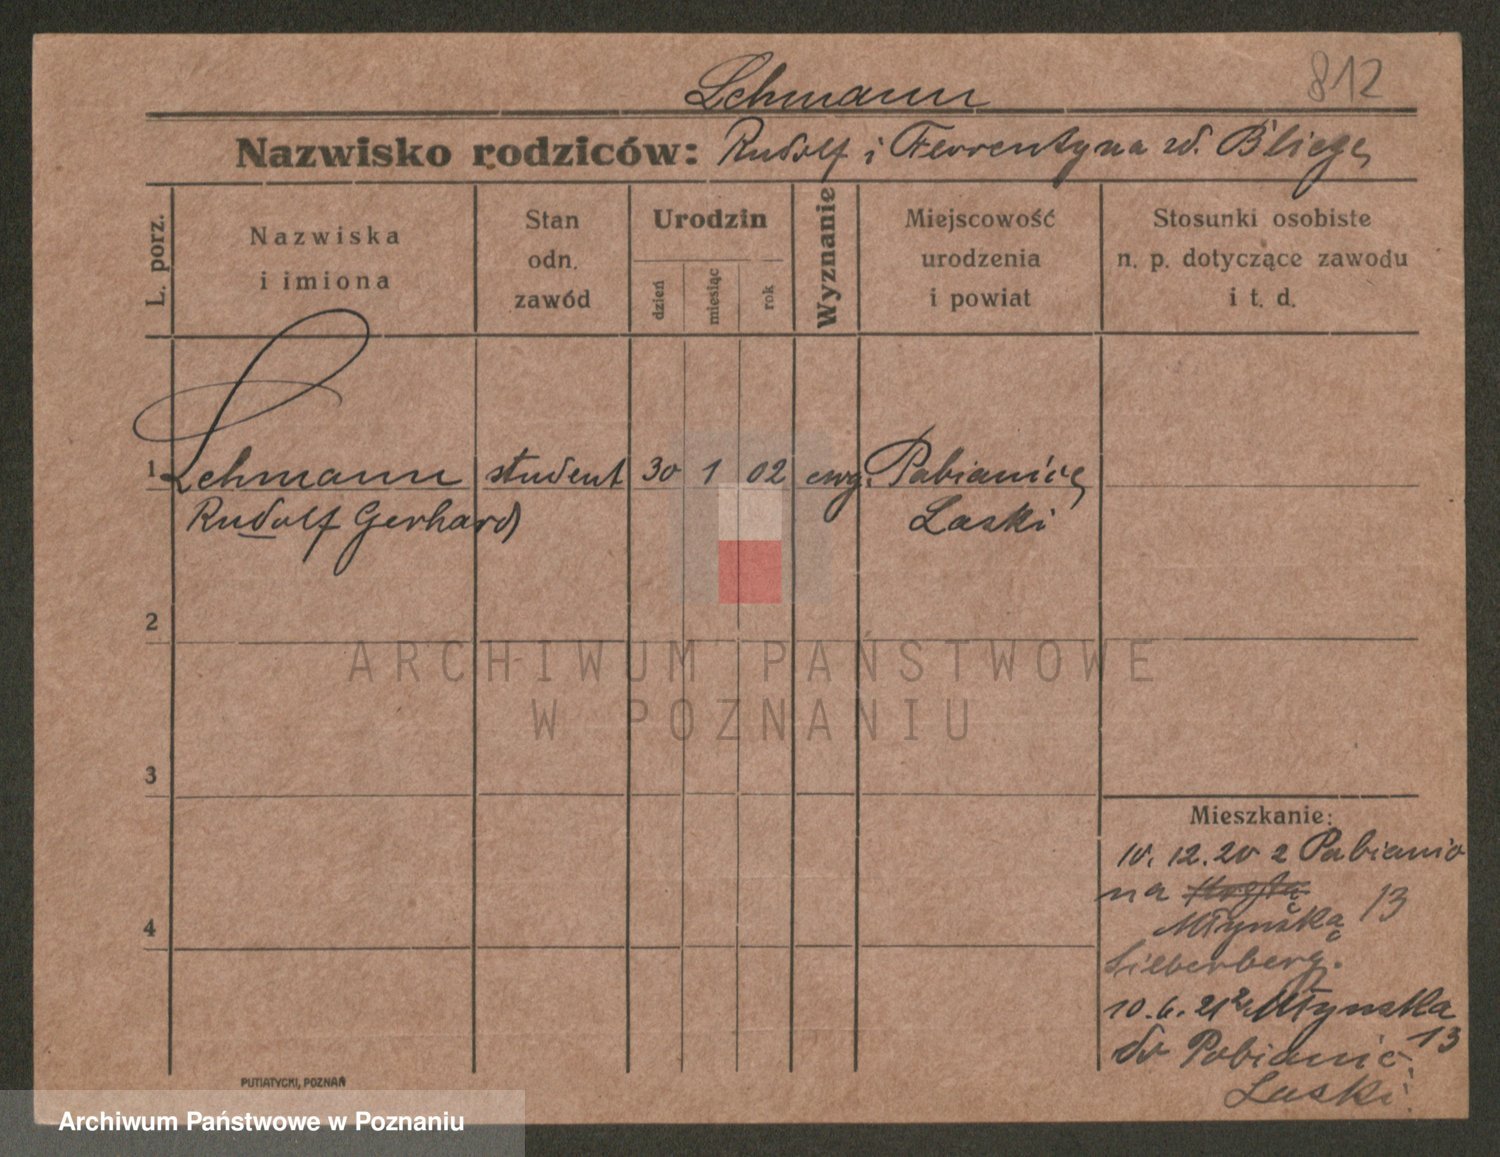 812
Lehmann
Nazwisko rodziców: Rudolf i Florentyna zd.
L. porz.
Nazwiska
i imiona
Stan
odn.
zawód
Urodzin
dzień
miesiąc
rok
Wyznanie
Miejscowość
urodzenia
i powiat
Stosunki osobiste
n. p. dotyczące zawodu
i t. d.
1 Lehmann student 30 1 02 ewg. Pabianice
Rudolf Gerhard Laski
2
ARCHIWUM PAŃSTWOWE
W POZNANIU
3
4
Mieszkanie:
10. 12. 20 z Pabianic
na
Młyńską 13
10. 6. 21 z Młyńska 13
do Pabianic
Laski
PUTIATYCKI, POZNAŃ
Archiwum Państwowe w Poznaniu